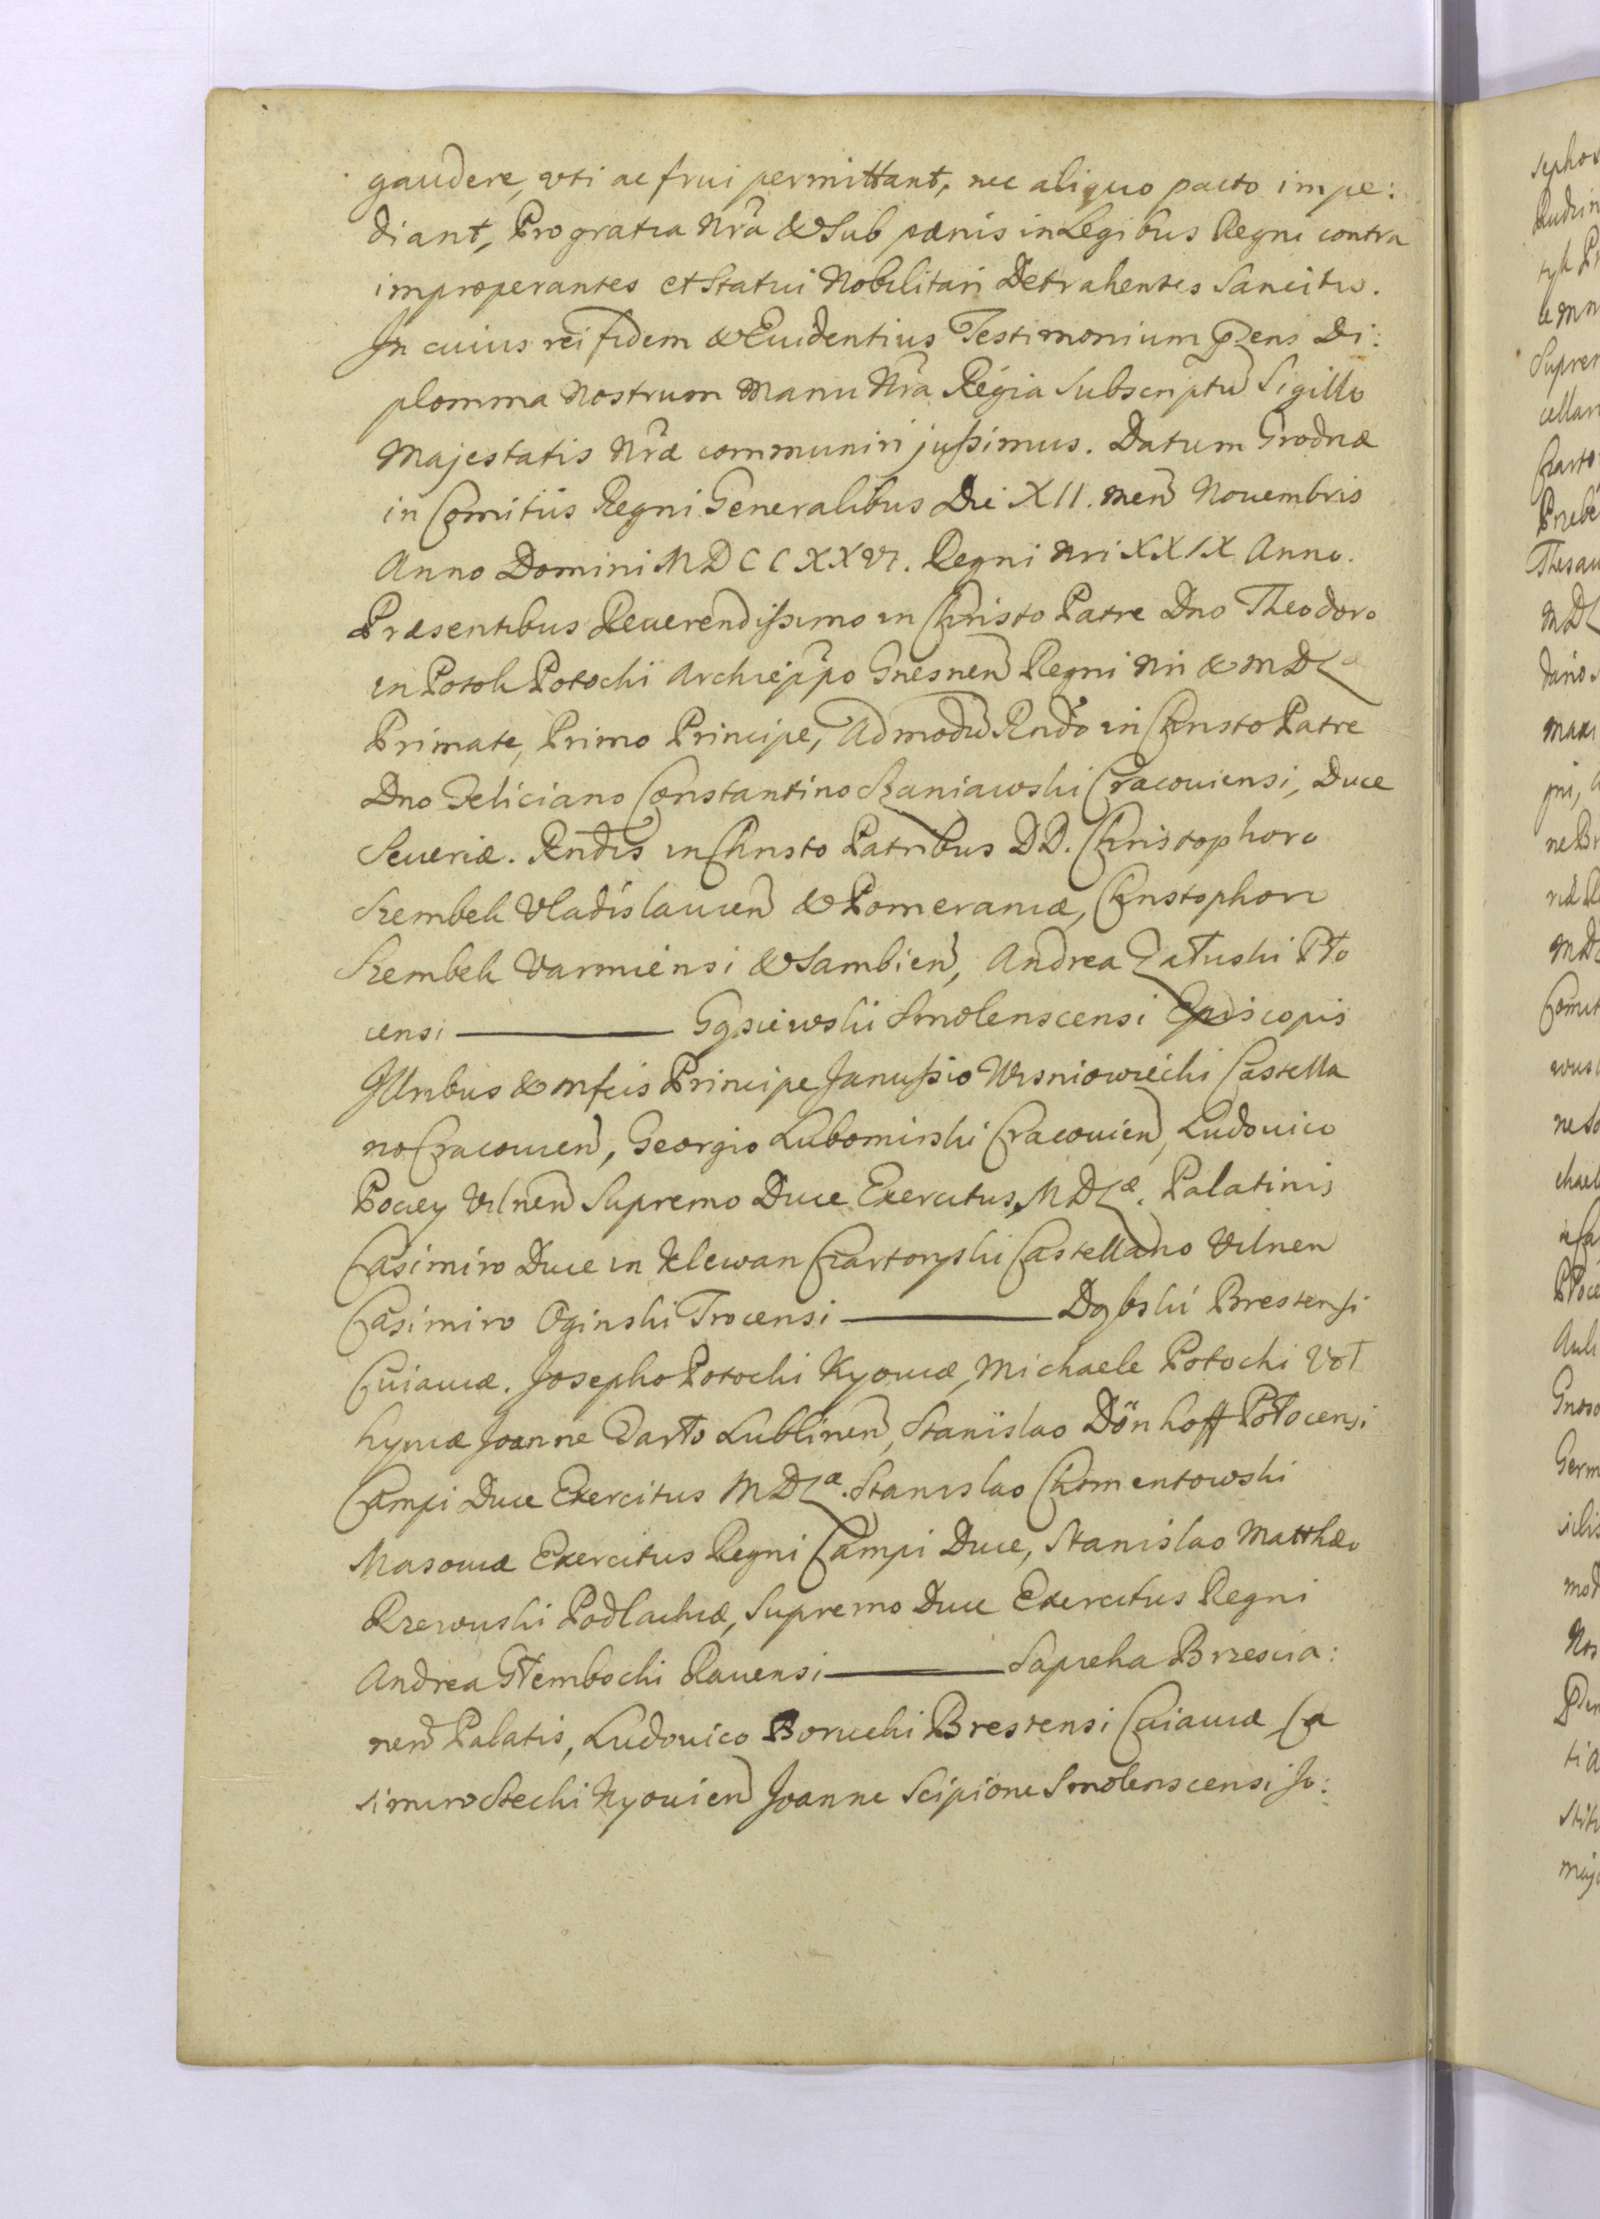 gaudere, vti ac frui permittant, nec aliquo pacto impe:
diant, Pro gratia Nrã & Sub pænis in Legibus Regni contra
improperantes et Statui Nobilitari Detrahentes Sancitis.
In cuius rei fidem & Euidentius Testimonium pñzens Di:
plomma Nostrum Manu Nrã Regia Subscriptũ Sigillo
Majestatis Nræ communiri jussimus. Datum Grodnæ
in Comitiis Regni Generalibus Die XII. Men Nouembris
Anno Domini MDCCXXVI. Regni Nri XXIX Anno.
Præsentibus Reuerendissimo in Christo Patre Dno Theodoro
in Potok Potocki Archieppo Gnesnen Regni Nri & MDLæ
Primate, Primo Principe, Admodũ Rndo in Christo Patre
Dno Feliciano Constantino Szaniawski Cracouiensi, Duce
Seueriæ. Rndis in Christo Patribus DD. Christophoro
Szembek Vladislauien & Pomeraniæ, Christophoro
Szembek Varmiensi & Sambien, Andrea Załuski Pło
censi ——— Gąsiewski Smolenscensi Episcopis
Illribus & Mfcis Principe Janussio Wisniowiecki Castella
no Cracouien, Georgio Lubomirski Cracouien, Ludouico
Pociey Vilnen Supremo Duce Exercitus MDLæ. Palatinis
Casimiro Duce in Klewan Czartoryski Castellano Vilnen
Casimiro Oginski Trocensi ——— Dąbski Brestensi
Cuiauiæ. Josepho Potocki Kyouiæ, Michaele Potocki Voł
hyniæ Joanne Tarło Lublinen, Stanislao Dönhoff Połocensi
Campi Duce Exercitus MDLæ. Stanislao Chomentowski
Masouiæ Exercitus Regni Campi Duce, Stanislao Matthæo
Rzewuski Podlachiæ, Supremo Duce Exercitus Regni
Andrea Głembocki Rauensi ——— Sapieha Brzescia:
nen Palatis, Ludouico Borucki Brestensi Cuiauiæ Ca
simiro Stecki Kyouien Joanne Scipione Smolenscensi Jo: